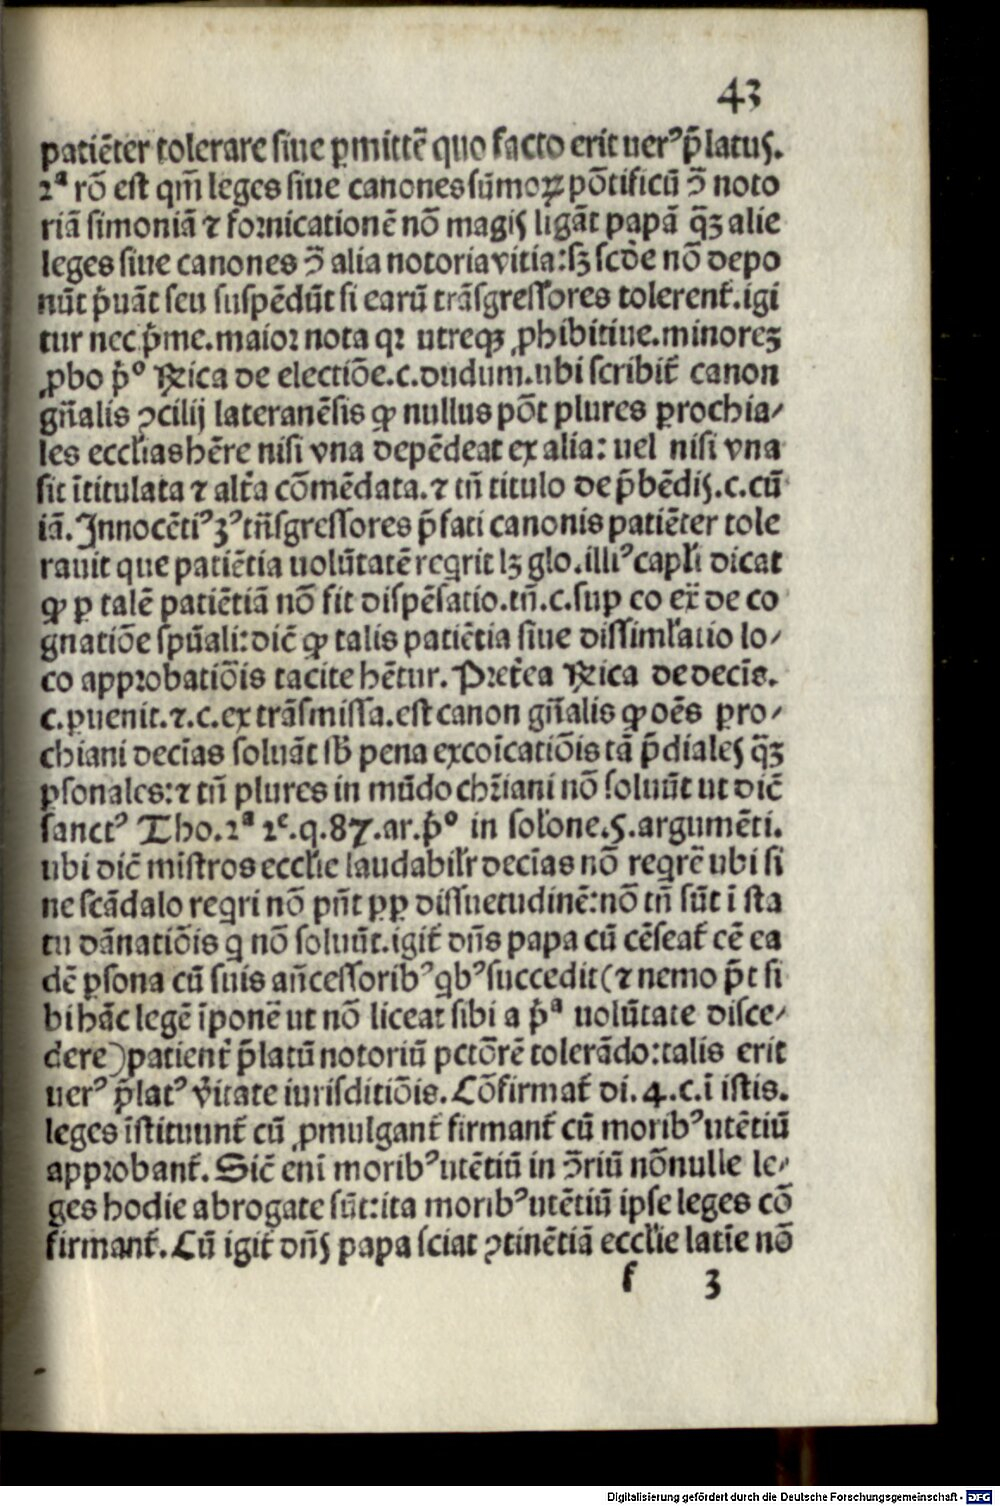 43
patiēter tolerare siue ꝑmittē quo facto erit uerꝰ p̄latus.
2ª rō est qm̄ leges siue canones sūmoꝝ pōtificū ↄ̄ noto
riā simoniā ⁊ fornicationē nō magis ligāt papā q̄ꝫ alie
leges siue canones ↄ̄ alia notoria vitia: sꝫ scd̄e nō depo
nūt p̄uāt seu suspēdūt si earū trāsgressores tolerent̄. igi
tur nec p̄me. maior nota qꝛ utreqꝫ ꝓhibitiue. minorēꝫ
ꝓbo p̄º Rica de electiōe. c. dudum. ubi scribit̄ canon
gn̄alis ↄcilij lateranēsis ꝙ nullus pōt plures ꝑrochia⸗
les eccl̄ias hēre nisi vna depēdeat ex alia: uel nisi vna
sit ītitulata ⁊ alt̄a cōmēdata. ⁊ tn̄ titulo de p̄bēdis. c. cū
iā. Innocētiꝰ 3ꝰ tn̄sgressores p̄fati canonis patiēter tole
rauit que patiētia uolūtatē reqrit lꝫ glo. illiꝰ capl̄i dicat
ꝙ ꝑ talē patiētiā nō fit dispēsatio. tn̄. c. sup eo ex̄ de co
gnatiōe spūali: dic̄ ꝙ talis patiētia siue dissiml̄atio lo⸗
co approbatiōis tacite hētur. Pret̄ea Rica de decīs.
c. ꝑuenit. ⁊. c. ex trāsmissa. est canon gn̄alis ꝙ oēs ꝑro⸗
chiani decīas soluāt sb̄ pena excoīcatiōis tā p̄diales q̄ꝫ
ꝑsonales: ⁊ tn̄ plures in mūdo chr̄iani nō soluūt ut dic̄
sanctꝰ Tho. 2ª 2ᵉ. q. 87. ar. p̄º in sol̄one. 5. argumēti.
ubi dic̄ mīstros eccl̄ie laudabil̄r decīas nō reqrē ubi si
ne scādalo reqri nō pn̄t ꝑꝑ dissuetudinē: nō tn̄ sūt ī sta
tu dānatiōis q nō soluūt. igit̄ dn̄s papa cū cēseat̄ cē ea
dē ꝑsona cū suis an̄cessoribꝰ qbꝰ succedit (⁊ nemo p̄t si
bi hāc legē īponē ut nō liceat sibi a p̄ª uolūtate disce⸗
dere) patient̄ p̄latū notoriū pctōrē tolerādo: talis erit
uerꝰ p̄latꝰ v̄itate iurisditiōis. Cōfirmat̄ di. 4. c. ī istis.
leges īstituunt̄ cū ꝓmulgant̄ firmant̄ cū moribꝰ utētiū
approbant̄. Sic̄ enī moribꝰ utētiū in ↄ̄riū nōnulle le⸗
ges hodie abrogate sūt: ita moribꝰ utētiū ipse leges cō
firmant̄. Cū igit̄ dn̄s papa sciat ↄtinētiā eccl̄ie latīe nō
f 3
Digitalisierung gefördert durch die Deutsche Forschungsgemeinschaft - DFG